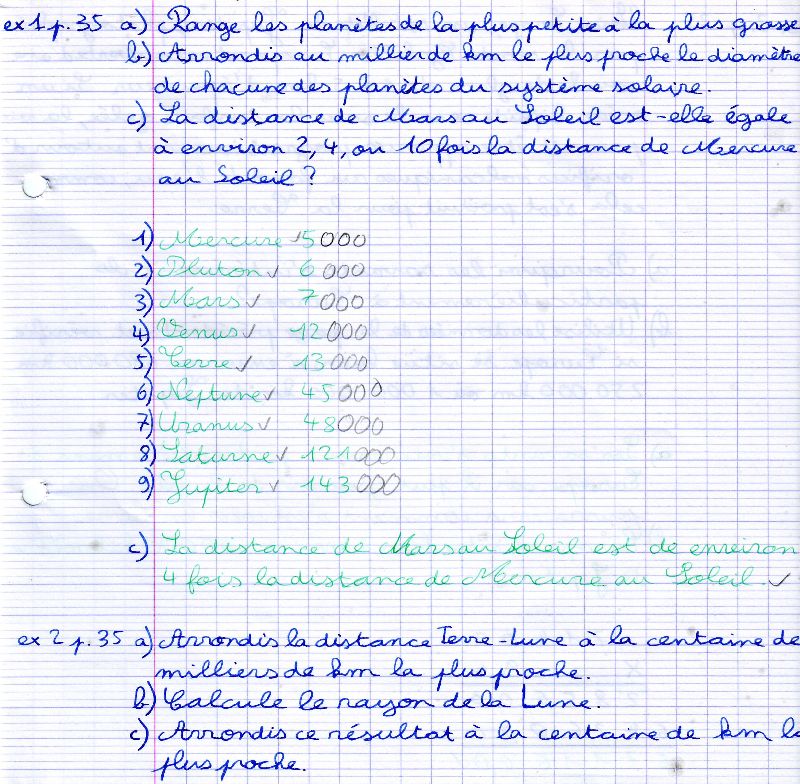 ex 1 p. 35 a) Range les planètes de la plus petite à la plus grosse
b) Arrondis au millier de km le plus proche le diamètre
de chacune des planètes du système solaire.
c) La distance de Mars au Soleil est-elle égale
à environ 2, 4, ou 10 fois la distance de Mercure
au Soleil ?
1) Mercure ✓ 5000
2) Pluton ✓ 6 000
3) Mars ✓ 7000
4) Venus ✓ 12000
5) Terre ✓ 13000
6) Neptune ✓ 45000
7) Uranus ✓ 48000
8) Saturne ✓ 121000
9) Jupiter ✓ 143000
c) La distance de Mars au Soleil est de environ
4 fois la distance de Mercure au Soleil. ✓
ex 2 p. 35 a) Arrondis la distance Terre-Lune à la centaine de
milliers de km la plus proche.
b) Calcule le rayon de la Lune.
c) Arrondis ce résultat à la centaine de km la
plus proche.